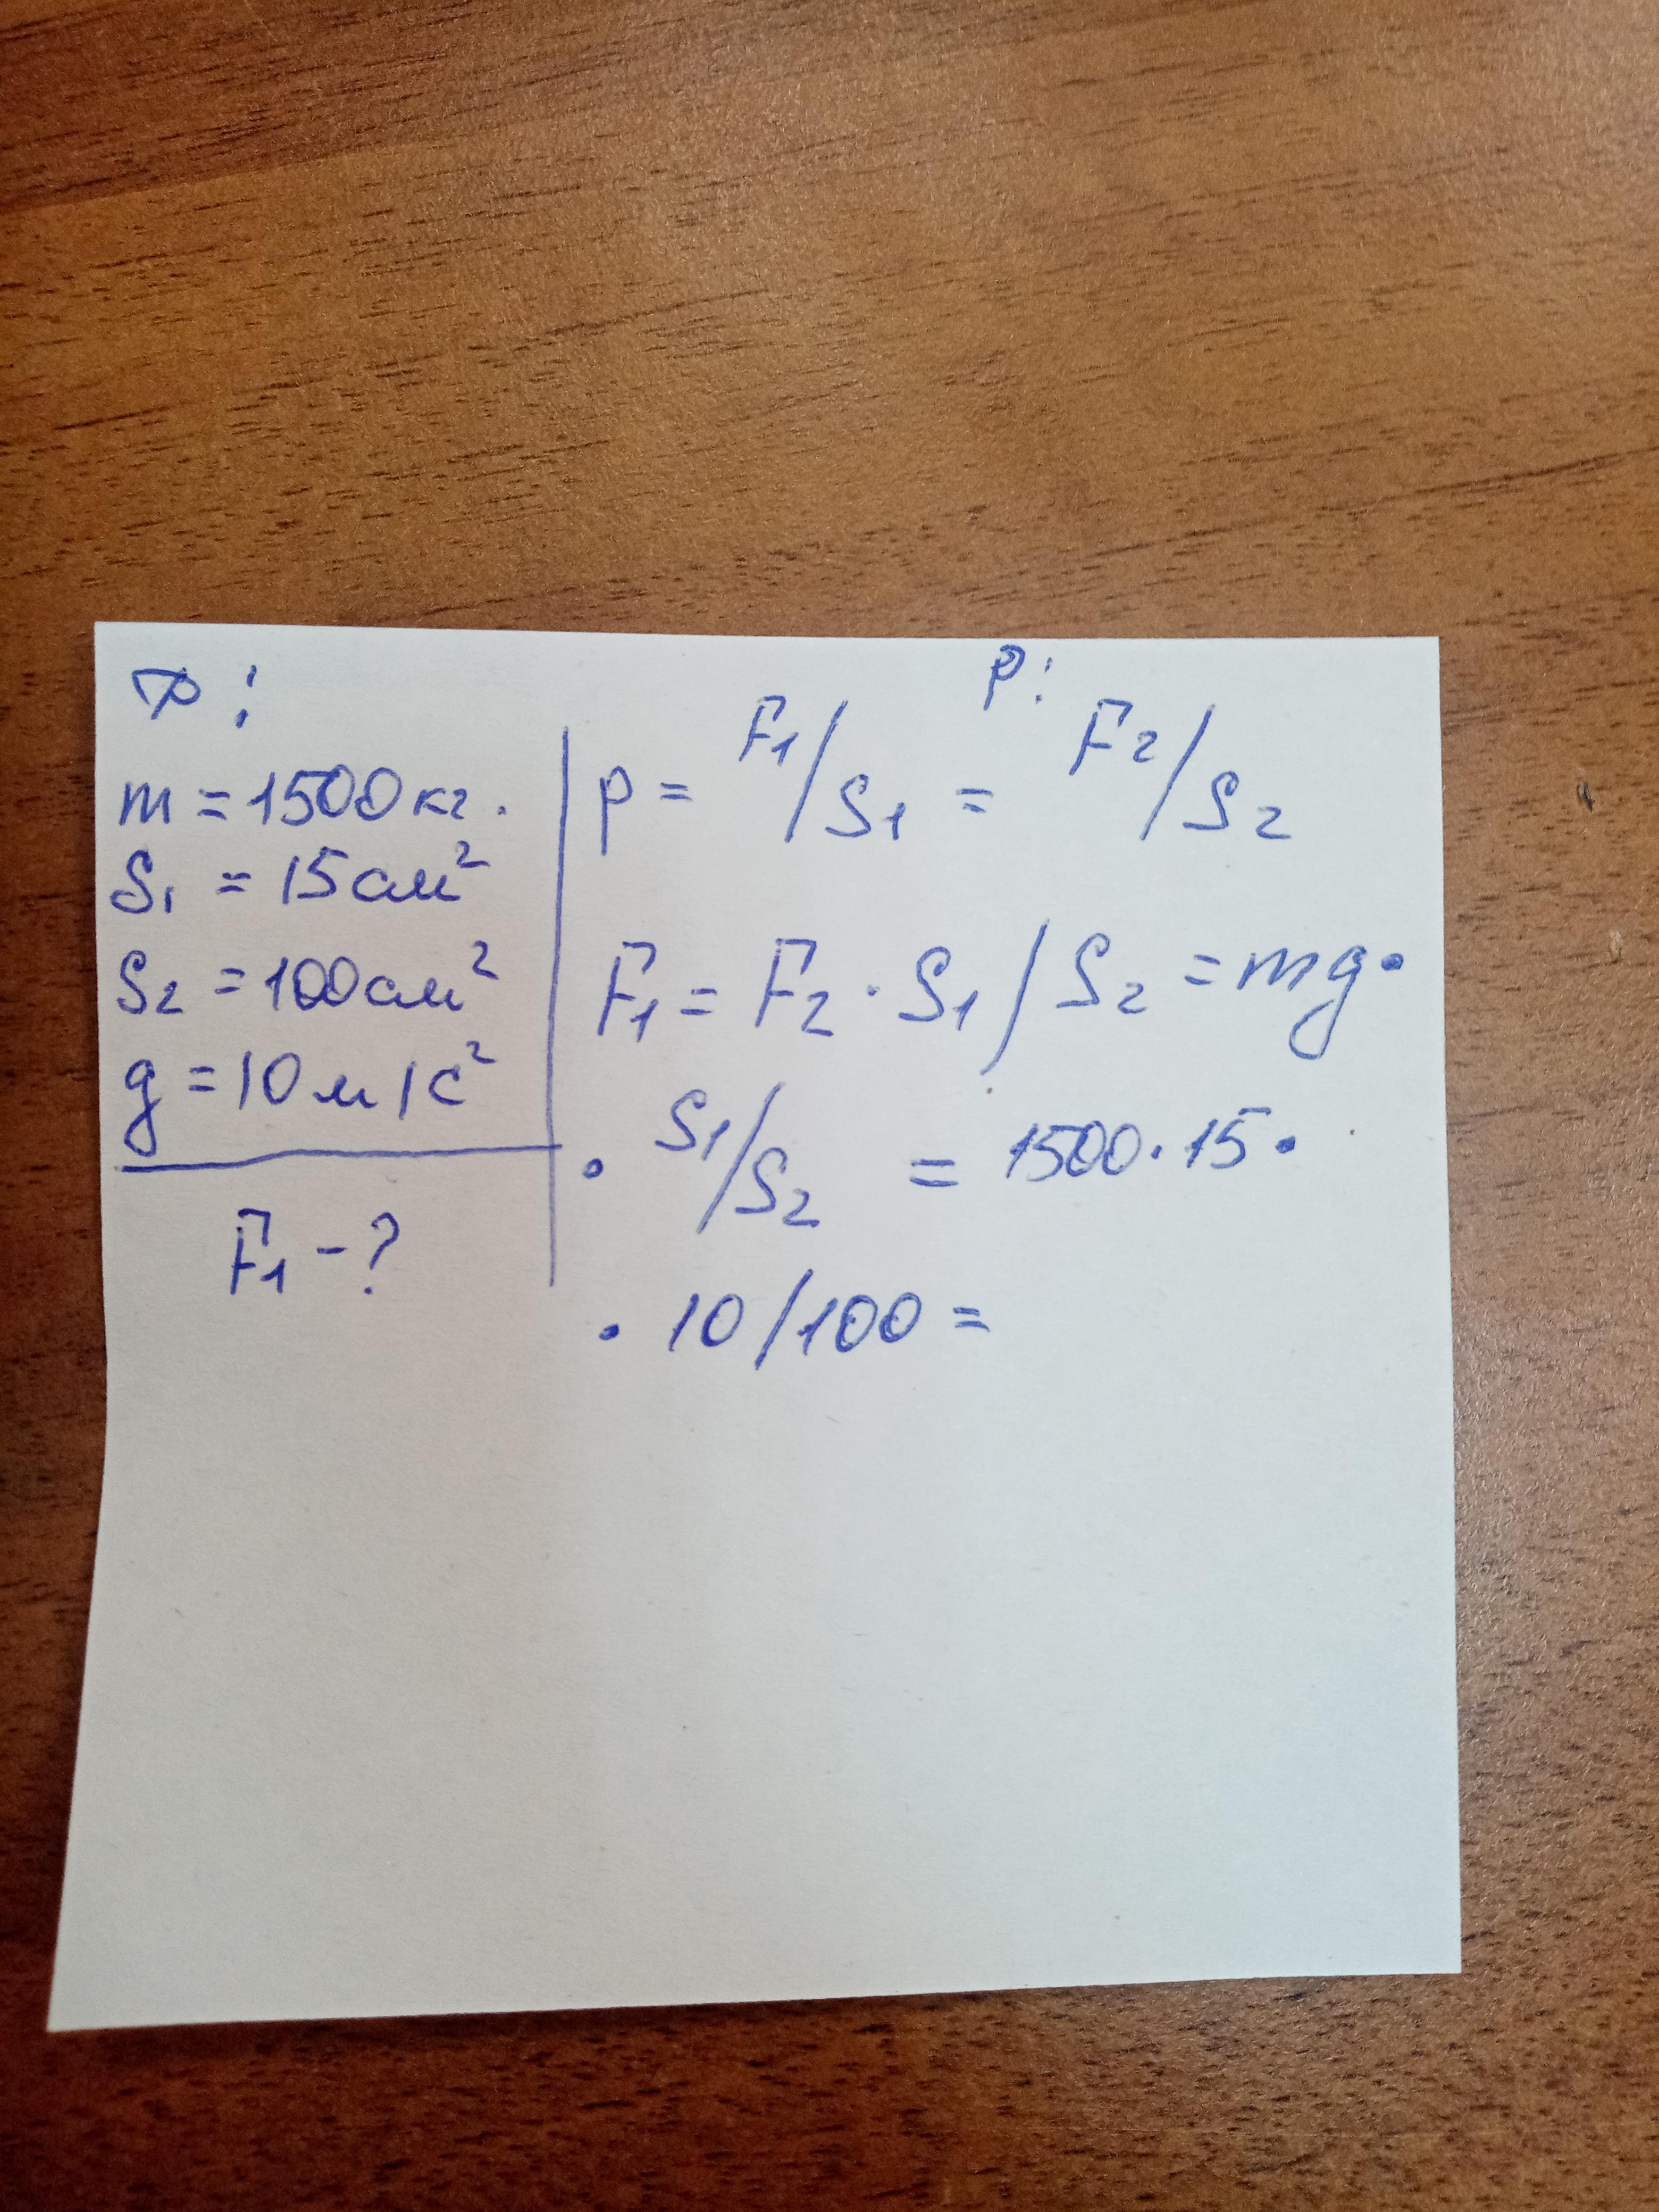 Д:
m = 1500 кг.
S₁ = 15 см²
S₂ = 100 см²
g = 10 м/с²
F₁ - ?
Р:
p = F₁/S₁ = F₂/S₂
F₁ = F₂ · S₁ / S₂ = mg ·
· S₁/S₂ = 1500 · 15 ·
· 10/100 =